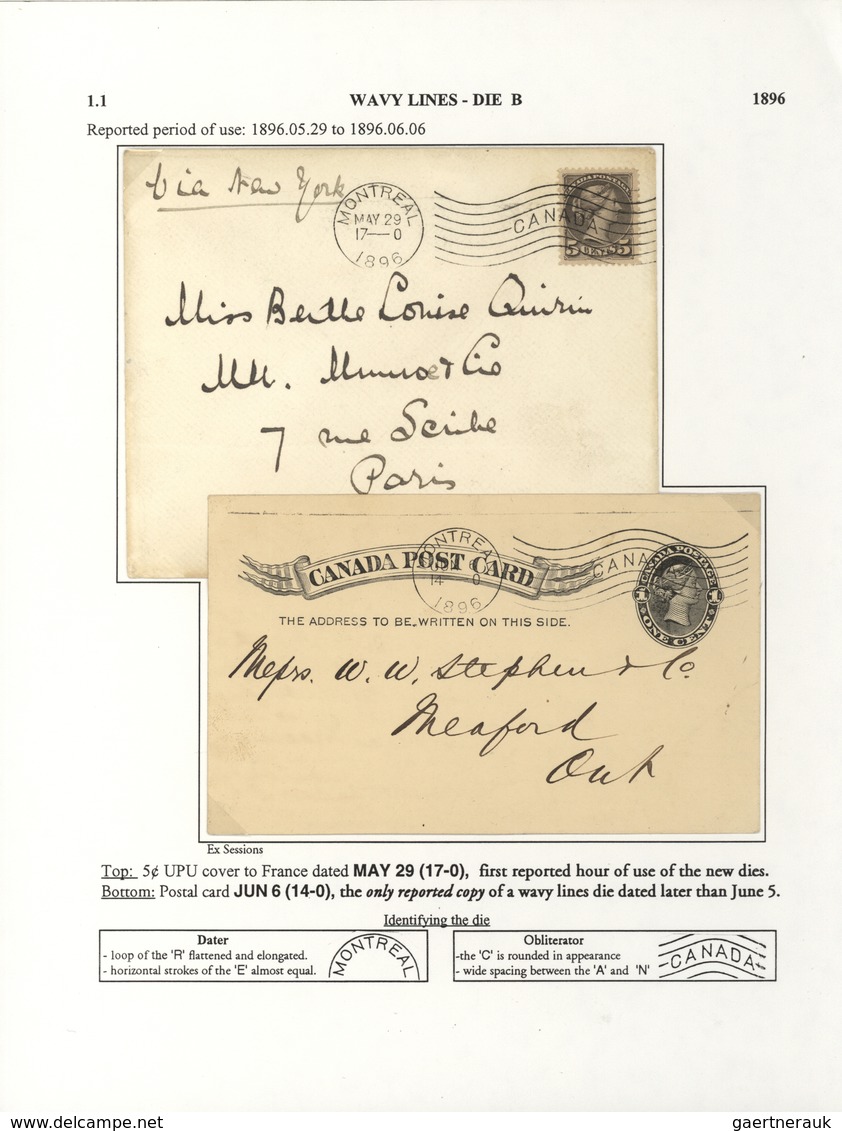 1.1 WAVY LINES - DIE B 1896
Reported period of use: 1896.05.29 to 1896.06.06
Via New York
MONTREAL
MAY 29
17—0
1896
CANADA
CANADA POSTAGE
5 CENTS 5
Miss Berthe Louise Quirin
MM. Munroe & Cie
7 rue Scribe
Paris
MONTREAL
14 0
1896
CANADA
CANADA POST CARD
CANADA POSTAGE
1 1
ONE CENT
THE ADDRESS TO BE WRITTEN ON THIS SIDE.
Messrs. W. W. Stephen & Co.
Meaford
Ont
Ex Sessions
Top: 5¢ UPU cover to France dated MAY 29 (17-0), first reported hour of use of the new dies.
Bottom: Postal card JUN 6 (14-0), the only reported copy of a wavy lines die dated later than June 5.
Identifying the die
Dater
- loop of the 'R' flattened and elongated.
- horizontal strokes of the 'E' almost equal.
MONTREAL
Obliterator
-the 'C' is rounded in appearance
- wide spacing between the 'A' and 'N'
CANADA
www.delcampe.net
gaertnerauk